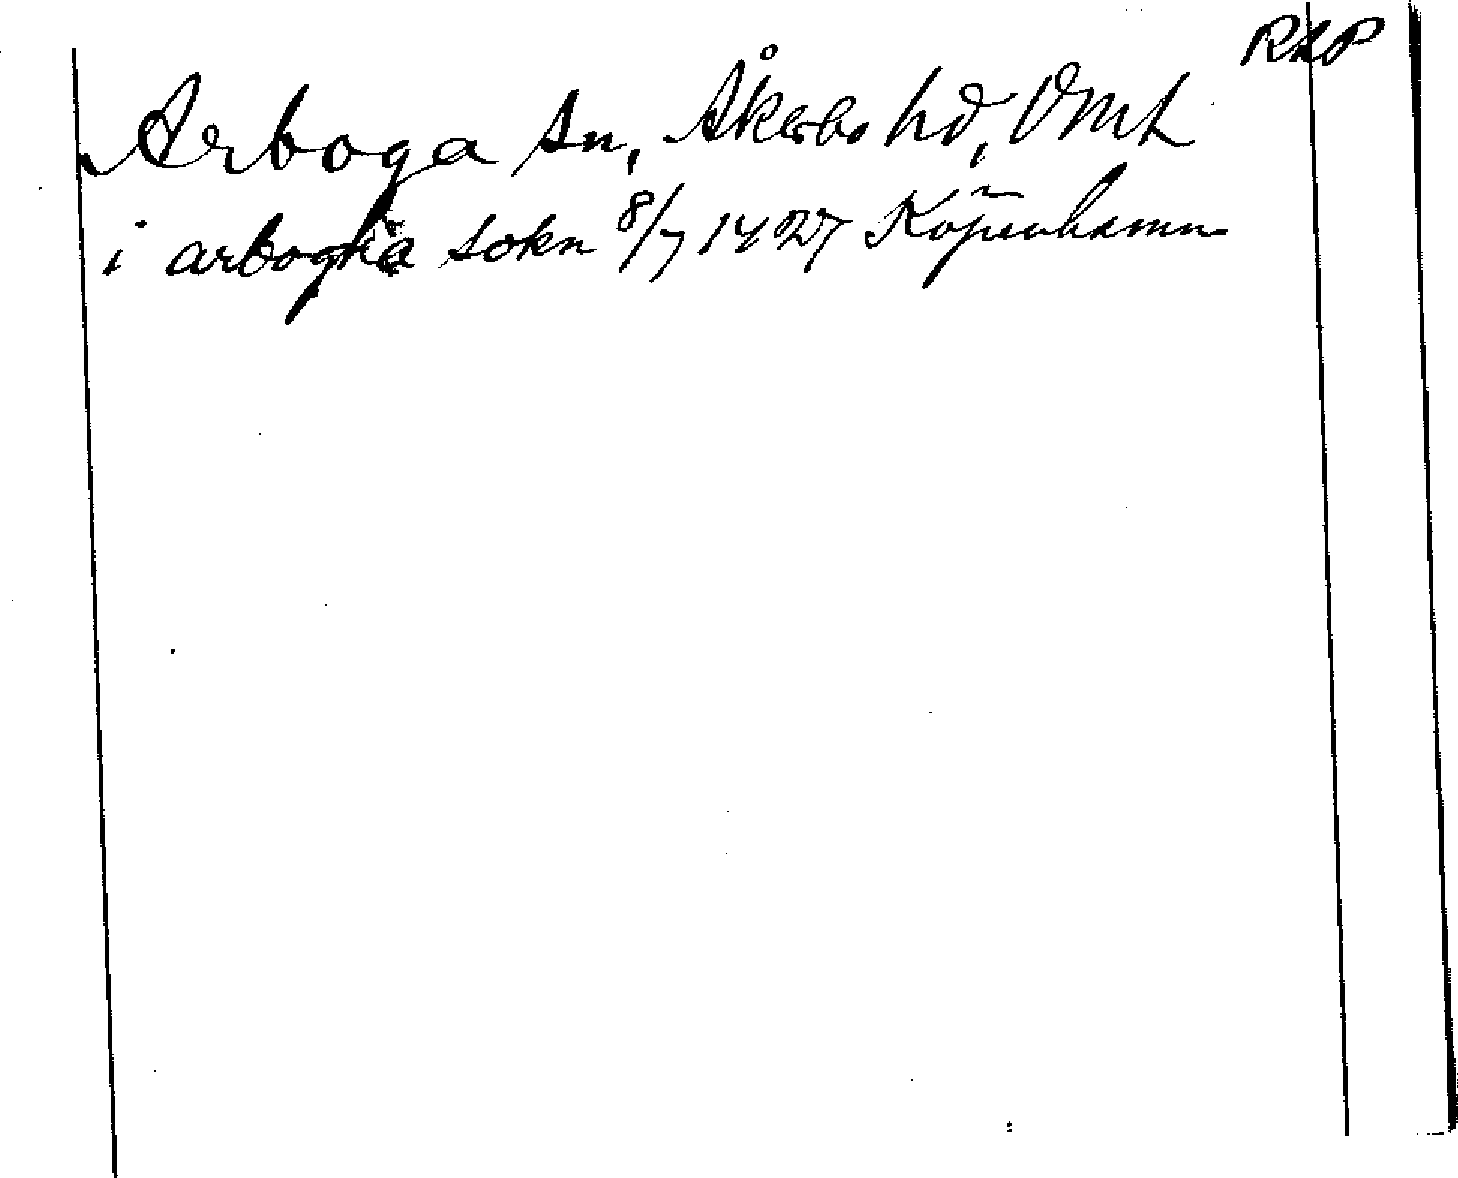 RAP
Arboga sn, Åkerbo hd, Vml
i arboghä sokn 8/7 1427 Köpenhamn